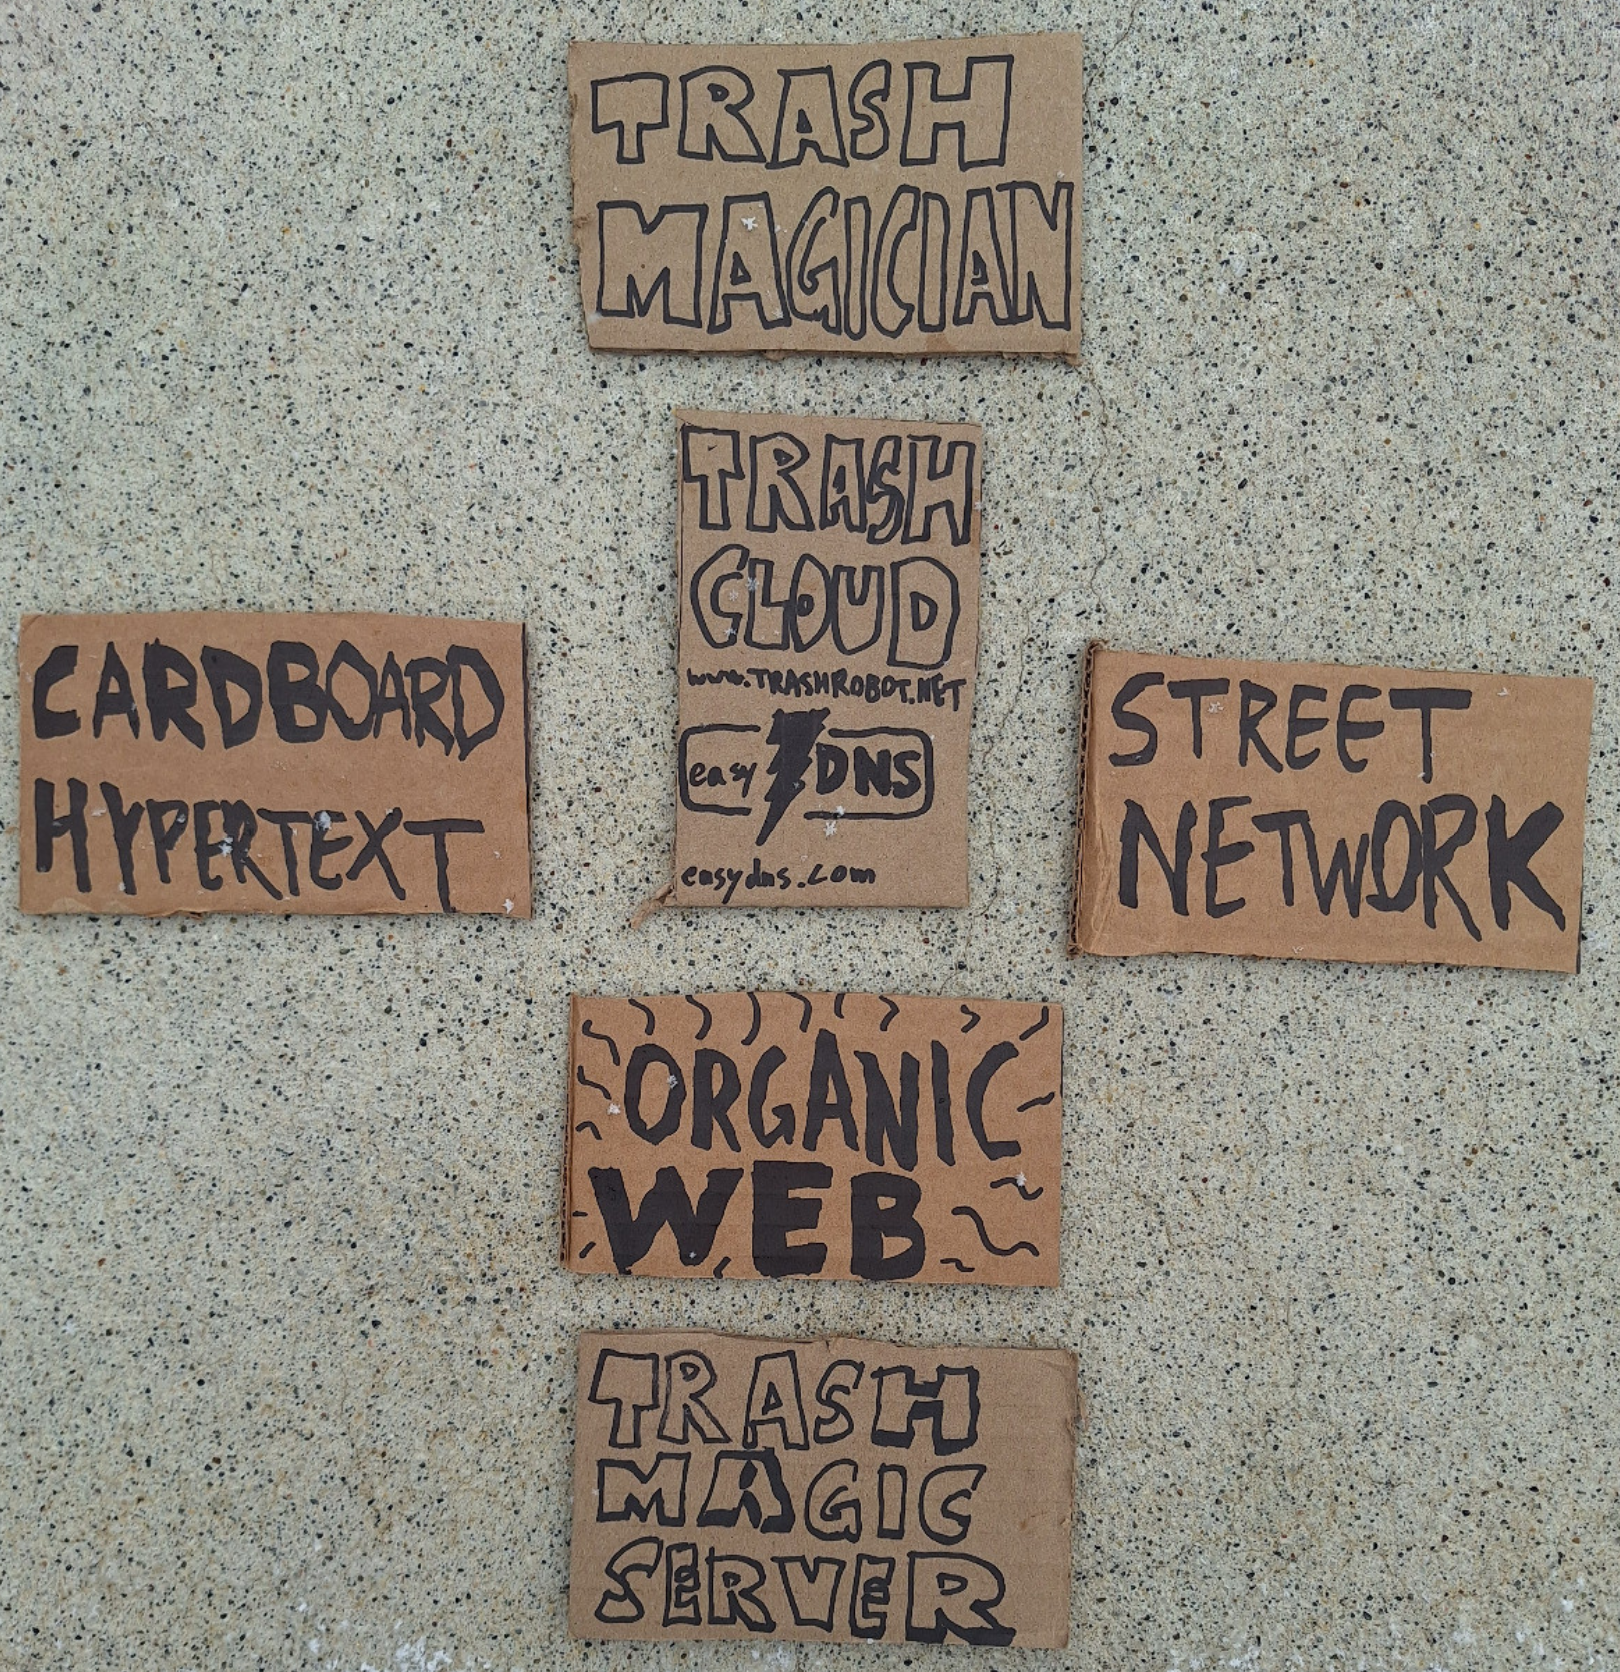 TRASH
MAGICIAN
TRASH
CLOUD
www.TRASHROBOT.NET
easy DNS
easydns.com
CARDBOARD
HYPERTEXT
STREET
NETWORK
ORGANIC
WEB
TRASH
MAGIC
SERVER